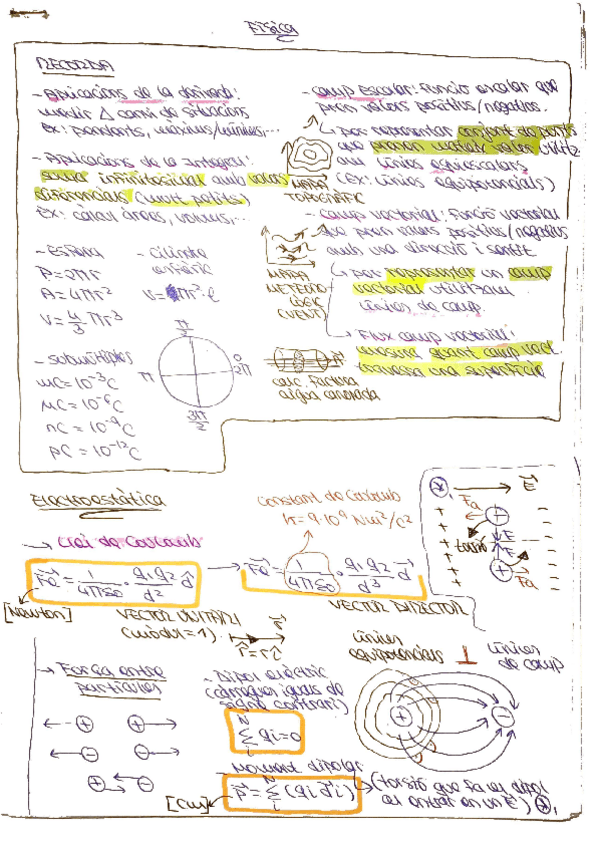 Física
RECORDA
- Aplicacions de la derivada:
medir Δ canvi de situacions
Ex: pendents, màxims/mínims,...
- Aplicacions de la Integral:
suma infinitesimal amb valors
diferencials (molt petits)
Ex: calcul àrees, volums,...
- Esfera
P=2πr
A=4πr²
V=4/3 πr³
- cilindre
V=πr²·l
π/2
π
0
2π
3π/2
- submúltiples
mC=10⁻³C
μC=10⁻⁶C
nC=10⁻⁹C
pC=10⁻¹²C
- camp Escalar: Funció escalar que
pren valors positius/negatius.
↳ per representar conjunt de punts
que prenen mateix valor utilitz
am línies equiescalars
(Ex: línies equipotencials)
MAPA
TOPOGRÀFIC
- camp vectorial: Funció vectorial
que pren valors positius/negatius
amb una direcció i sentit
↳ per representar un camp
vectorial utilitzam
línies de camp.
MAPA
METEORO-
LÒGIC
(VENT)
↳ Flux camp vectorial:
mesura quant camp vect.
travessa una superfície
aigua canonada
Electroestàtica
→ Llei de Coulomb
Constant de Coulomb
k=9·10⁹ Nm²/C²
Fe = 1/4πε₀ · q₁q₂/d² d
→ Fe = 1/4πε₀ · q₁q₂/d³ d
[Newton]
VECTOR UNITARI
(mòdul=1)
VECTOR DIRECTOR
→ Força entre
partícules
- Dipol elèctric
(càrregues iguals de
signe contrari)
N
Σ qi=0
i
- Moment dipolar
N
p = Σ (qi di)
i
[Cm]
(torsió que fa el dipol
al entrar en un E)
línies
equipotencials
⊥
línies
de camp
E
Fe
torsió
Fe